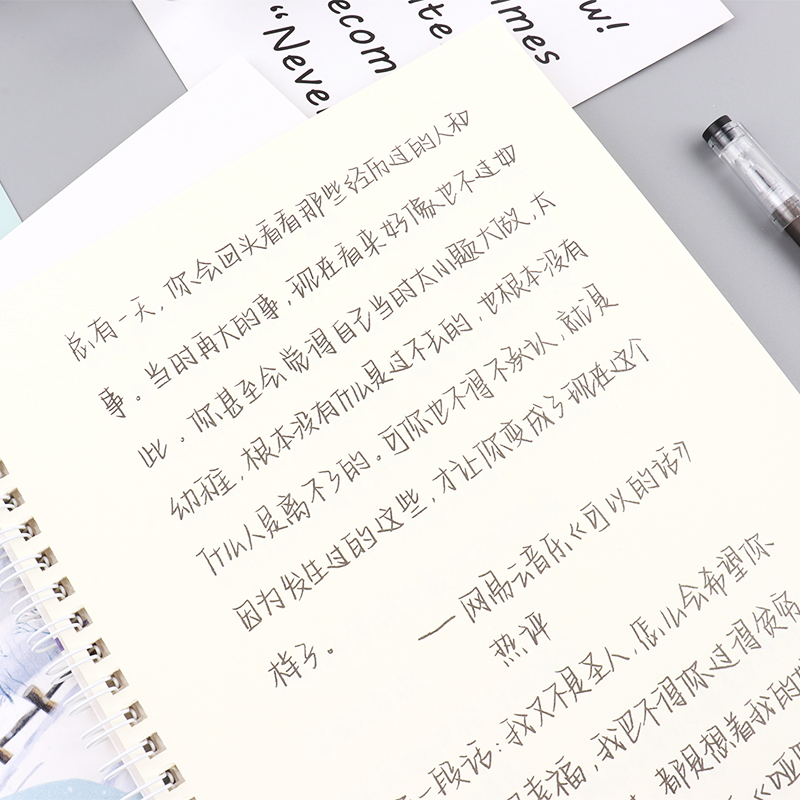 ecom
"Neve
总有一天,你会回头看看那些经历过的人和
事。当时再大的事,现在看来好像也不过如
此。你甚至会觉得自己当时太小题大做,太
幼稚,根本没有什么是过不去的,也根本没有
什么人是离不了的。可你也不得不承认,就是
因为发生过的这些,才让你变成了现在这个
样子。
——网易云音乐《可以的话》
热评
一段话:我又不是圣人,怎么会希望你
幸福,我巴不得你过得贫穷
都是想着我的